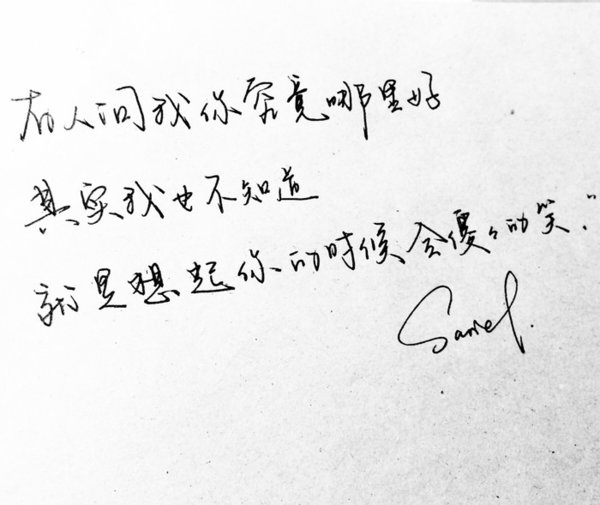 有人问我你究竟哪里好
其实我也不知道
就是想起你的时候会傻々的笑."